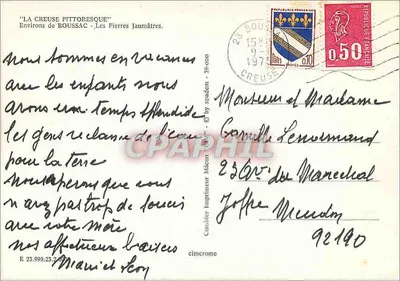 "LA CREUSE PITTORESQUE"
Environs de BOUSSAC - Les Pierres Jaumâtres.
23 BOUSSAC
15H
9-
1975
CREUSE
0.10
0.50
nous sommes en vacances
avec les enfants nous
avons un temps splendide
les gens reclame de l'eau
pour la terre
nous esperons que vous
n avez pas trop de soucis
avec votre mère
nos affectueux baisers
Marie et Leon
E 23.999.23.2
Combier Imprimeur Mâcon
by spadem
cimcrome
Monsieur et Madame
Camille Lenormand
23 Av du Marechal
Joffre Meudon
92190
CPAPHIL